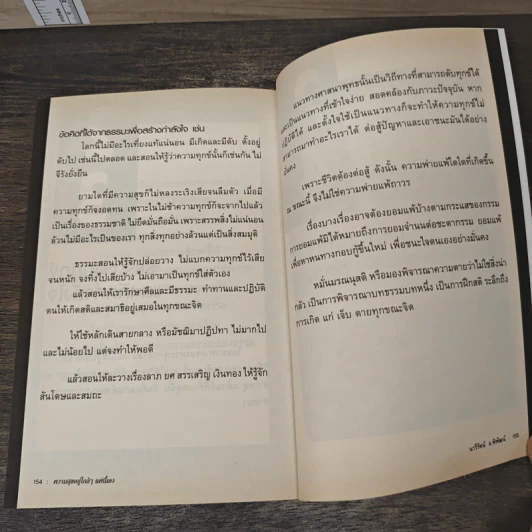 ข้อคิดที่ได้จากธรรมะเพื่อสร้างกำลังใจ เช่น
โลกนี้ไม่มีอะไรเที่ยงแท้แน่นอน มีเกิดและมีดับ ตั้งอยู่
ดับไป เช่นนี้ไปตลอด และสอนให้รู้ว่าความทุกข์นั้นก็เช่นกัน ไม่
จีรังยั่งยืน
ยามใดที่มีความสุขก็ไม่หลงระเริงเสียจนลืมตัว เมื่อมี
ความทุกข์ก็จงอดทน เพราะไม่ช้าความทุกข์ก็จะจากไปแล้ว
เป็นเรื่องของธรรมชาติ ไม่ยึดมั่นถือมั่น เพราะสรรพสิ่งไม่แน่นอน
ล้วนไม่มีอะไรเป็นของเรา ทุกสิ่งทุกอย่างล้วนแต่เป็นสิ่งสมมุติ
ธรรมะสอนให้รู้จักปล่อยวาง ไม่แบกความทุกข์ไว้เสีย
จนหนัก จงทิ้งไปเสียบ้าง ไม่เอามาเป็นทุกข์ใส่ตัวเอง
แล้วสอนให้เรารักษาศีลและมีธรรมะ ทำทานและปฏิบัติ
ตนให้เกิดสติและสมาธิอยู่เสมอในทุกขณะจิต
ให้ใช้หลักเดินสายกลาง หรือมัชฌิมาปฏิปทา ไม่มากไป
และไม่น้อยไป แต่จงทำให้พอดี
แล้วสอนให้ละวางเรื่องลาภ ยศ สรรเสริญ เงินทอง ให้รู้จัก
สันโดษและสมถะ
154 : ความสุขอยู่ใกล้ๆ แค่นี้เอง
แนวทางศาสนาพุทธนั้นเป็นวิถีทางที่สามารถดับทุกข์ได้
และเป็นแนวทางที่เข้าใจง่าย สอดคล้องกับภาวะปัจจุบัน หาก
ปฏิบัติได้ และตั้งใจใช้เป็นแนวทางก็จะทำให้ความทุกข์ไม่
สามารถมาทำอะไรเราได้ ต่อสู้ปัญหาและเอาชนะมันได้อย่าง
มั่นคง
เพราะชีวิตต้องต่อสู้ ดังนั้น ความพ่ายแพ้ใดใดที่เกิดขึ้น
ณ ขณะนี้ จึงไม่ใช่ความพ่ายแพ้ถาวร
เรื่องบางเรื่องอาจต้องยอมแพ้บ้างตามกระแสของกรรม
การยอมแพ้มิได้หมายถึงการยอมจำนนต่อชะตากรรม ยอมแพ้
เพื่อหาหนทางกอบกู้ขึ้นใหม่ เพื่อชนะใจตนเองอย่างมั่นคง
หมั่นมรณนุสติ หรือมองพิจารณาความตายว่าไม่ใช่สิ่งน่า
กลัว เป็นการพิจารณาบทธรรมบทหนึ่ง เป็นการฝึกสติ ระลึกถึง
การเกิด แก่ เจ็บ ตายทุกขณะจิต
นารีรัตน์ อ.พิพัฒน์ : 155